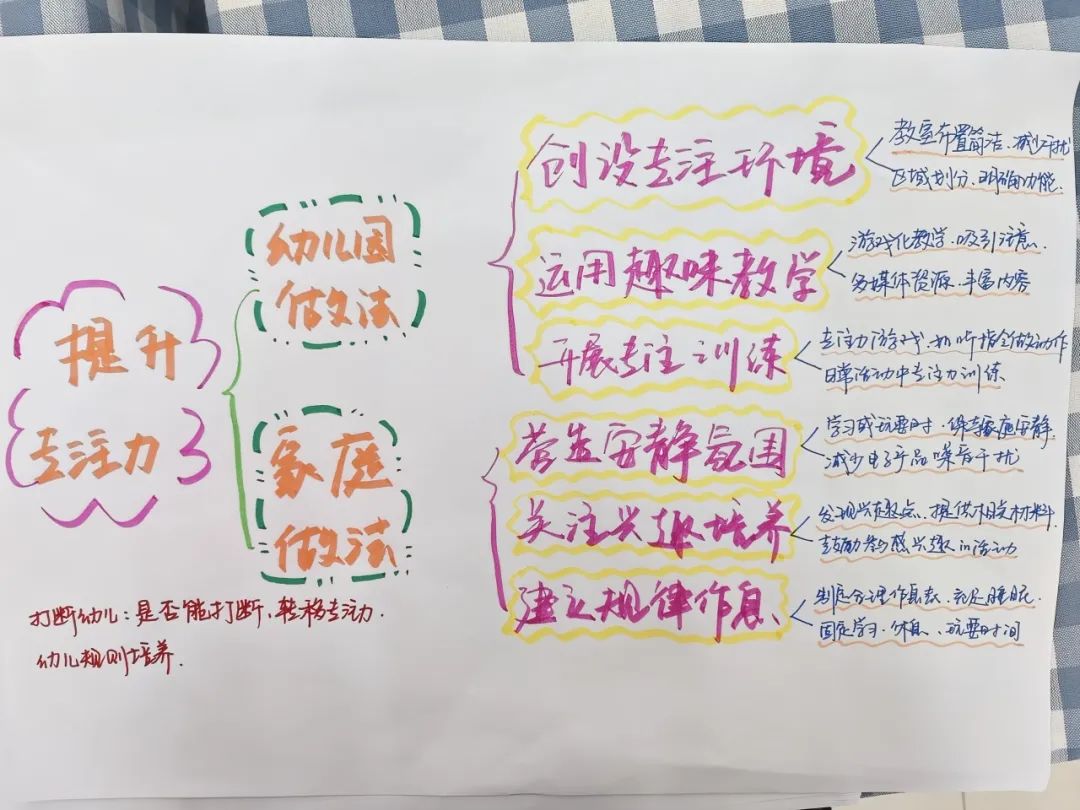 提升
专注力
幼儿园
做法
创设专注环境
教室布置简洁、减少干扰
区域划分、明确功能.
运用趣味教学
游戏化教学、吸引注意.
多媒体资源、丰富内容
开展专注训练
专注力游戏、如听指令做动作
日常活动中专注力训练
家庭
做法
营造安静氛围
学习或玩耍时、保持家庭安静.
减少电子产品噪音干扰
关注兴趣培养
发现兴趣点、提供相应材料.
鼓励参与感兴趣的活动
建立规律作息、
制定合理作息表、充足睡眠.
固定学习、休息、玩耍时间
打断幼儿：是否能打断、转移专注力.
幼儿规则培养.